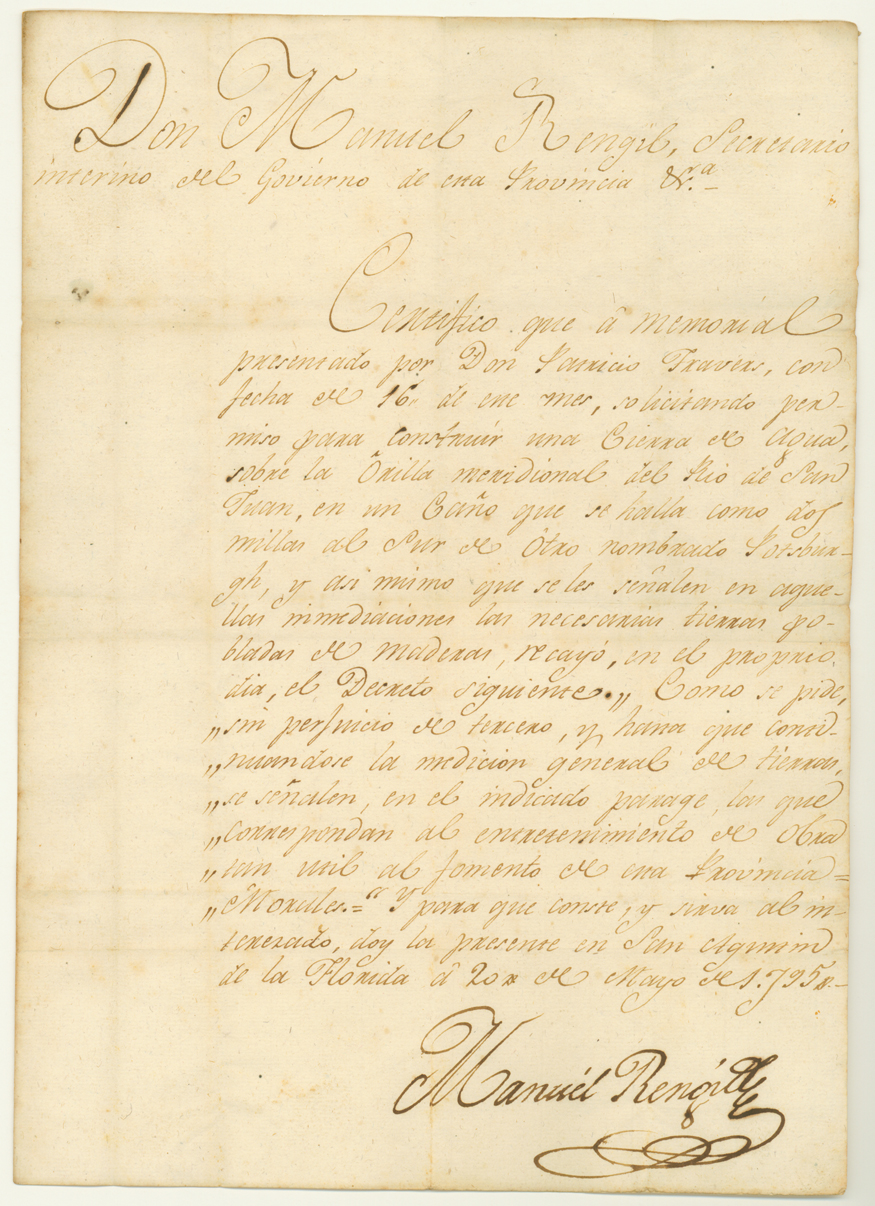 Don Manuel Rengil, Secretario
interino del Govierno de esta Provincia &.ª
Certifico que â memorial
presentado por Don Patricio Travers, con
fecha de 16, de este mes, solicitando per-
miso para construir una Cierra de Agua,
sobre la Orilla meridional del Rio de San
Juan, en un Caño que se halla como dos
millas al Sur de Otro nombrado Potsbur-
gh, y asi mismo que se les señalen en aque-
llas inmediaciones las necesarias tierras po-
bladas de maderas, recayó, en el proprio
dia, el Decreto siguiente. „ Como se pide,
„ sin perjuicio de tercero, y hasta que conti-
„ nuandose la medicion general de tierras,
„ se señalen, en el indicado parage, las que
„ correspondan al entretenimiento de Obra
„ tan util al fomento de esta Provincia =
„ Morales. = " Y para que conste, y sirva al in-
teresado, doy la presente en San Agustin
de la Florida â 20 de Mayo de 1.795
Manuél Rengil